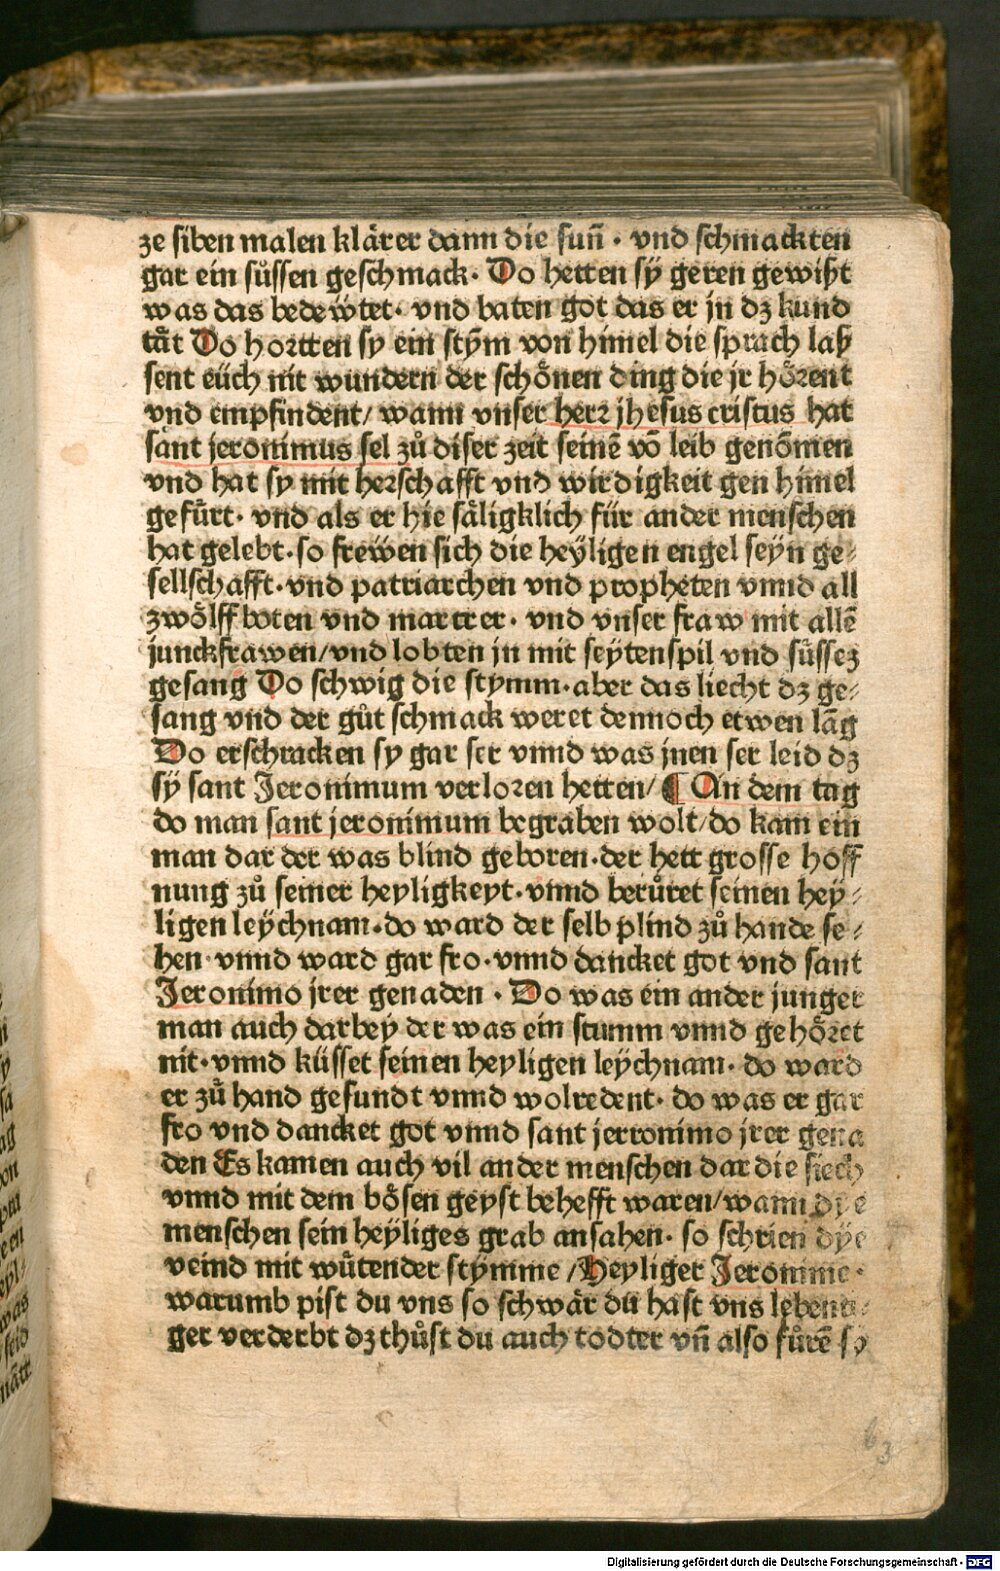 ze siben malen klårer dann die suñ · vnd schmackten
gar ein sůssen geschmack · Do hetten sÿ geren gewißt
was das bedeẅtet · vnd baten got das er jn dz kund
tåt Do hortten sy ein stỹm von himel die sprach laß
sent eüch nit wundern der schönen ding die jr hörent
vnd empfindent / wann vnser herr jhesus cristus hat
sant jeronimus sel zů diser zeit seinẽ võ leib genõmen
vnd hat sy mit herschafft vnd wirdigkeit gen himel
gefůrt · vnd als er hie såligklich für ander menschen
hat gelebt · so freẅen sich die heÿligen engel seÿn ge⸗
sellschafft · vnd patriarchen vnd propheten vnnd all
zwölffboten vnd martrer · vnd vnser fraw mit allẽ
junckfrawen / vnd lobten jn mit seÿtenspil vnd sůssez
gesang Do schwig die stymm · aber das liecht dz ge⸗
sang vnd der gůt schmack weret dennoch etwen lãg
Do erschracken sy gar ser vnnd was jnen ser leid dz
sÿ sant Jeronimum verloren hetten / ¶ An dem tag
do man sant jeronimum begraben wolt / do kam ein
man dar der was blind geboren · der hett grosse hoff
nung zů seiner heyligkeyt · vnnd berůret seinen hey⸗
ligen leÿchnam · do ward der selb plind zů hande se⸗
hen · vnnd ward gar fro · vnnd dancket got vnd sant
Jeronimo jrer genaden · Do was ein ander junger
man auch darbey der was ein stumm vnnd gehöret
nit · vnnd küsset seinen heyligen leÿchnam · do ward
er zů hand gesundt vnnd wolredent · do was er gar
fro vnd dancket got vnnd sant jerronimo jrer gena
den Es kamen auch vil ander menschen dar die siech
vnnd mit dem bösen geyst behefft waren / wann dye
menschen sein heÿliges grab ansahen · so schrien dÿe
veind mit wůtender stÿmme / Heyliger Jeronime ·
warumb pist du vns so schwår du hast vns lebenti⸗
ger verderbt dz thůst du auch todter vñ also fůrẽ sy
63
Digitalisierung gefördert durch die Deutsche Forschungsgemeinschaft - DFG